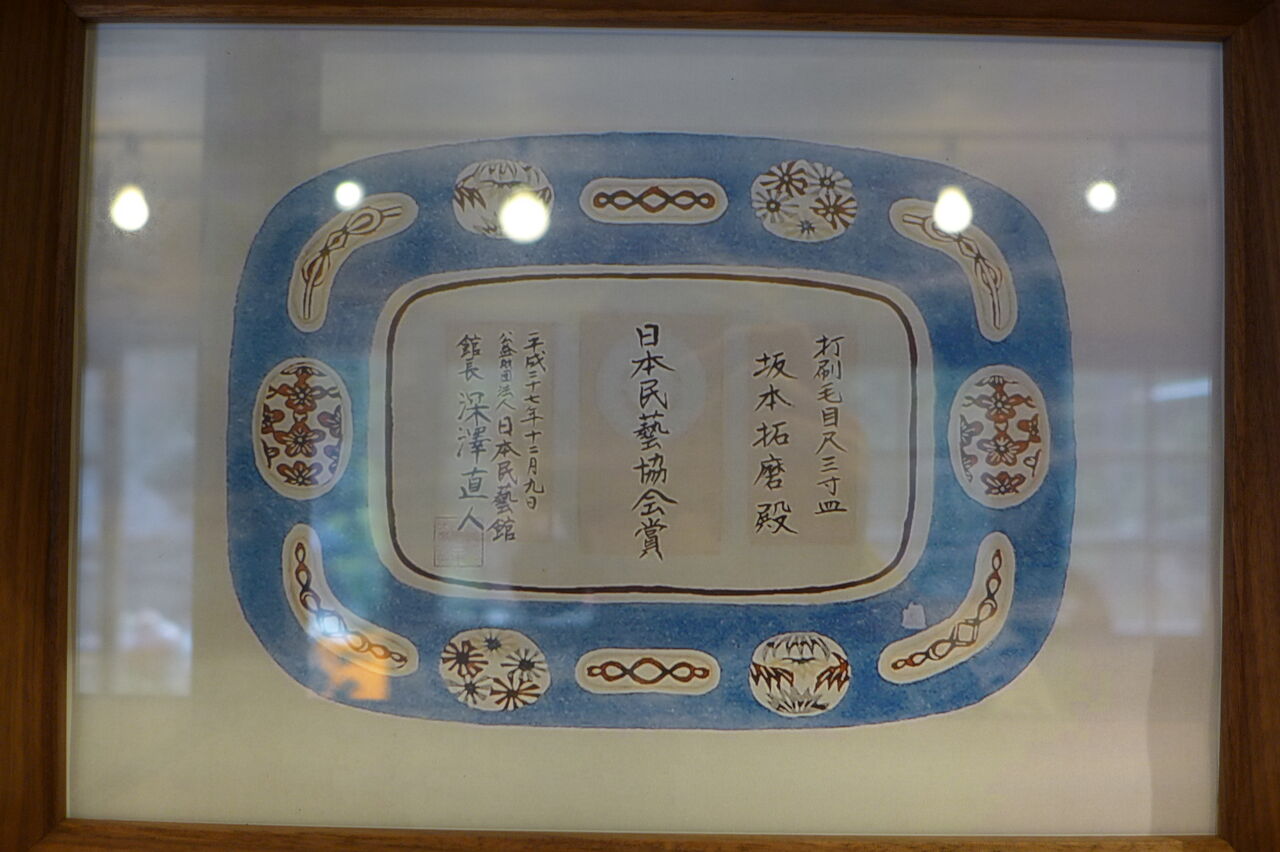 打刷毛目尺三寸皿
坂本拓磨殿
日本民藝協会賞
平成二十七年十二月九日
公益財団法人日本民藝館
館長 深澤直人